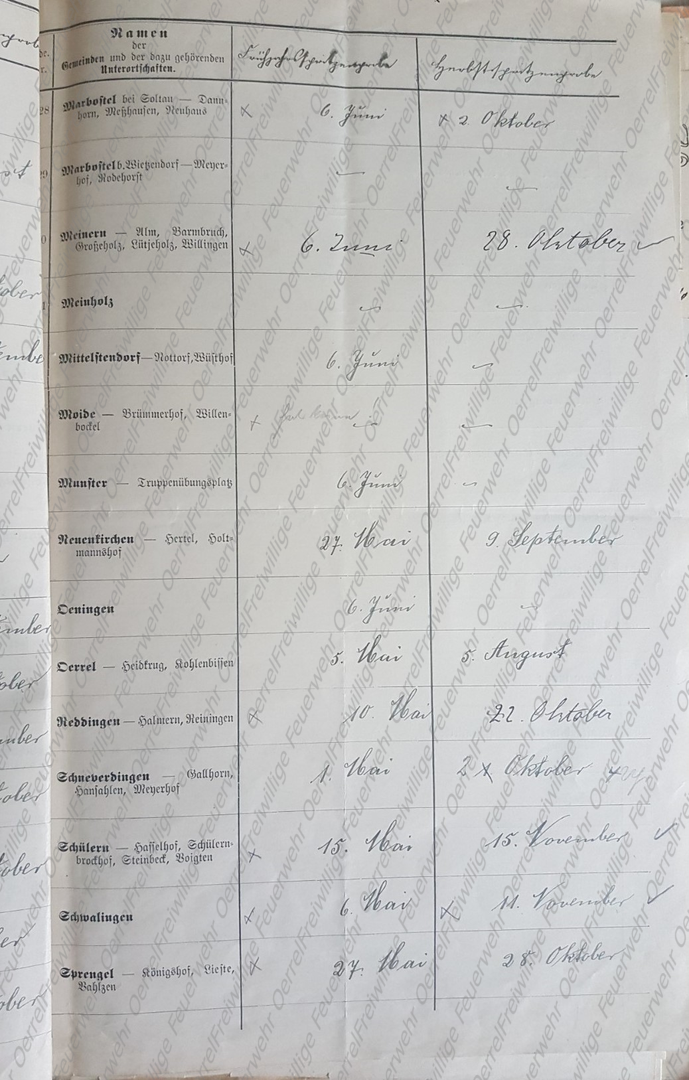 Namen
der
Gemeinden und der dazu gehörenden
Unterortschaften.
Frühjahrsspritzenprobe
Herbstspritzenprobe
28 Marbostel bei Soltan — Dann-
horn, Meßhausen, Neuhaus
× 6. Juni
× 2. Oktober
9 Marbostel b. Wietzendorf — Meyer-
hof, Rodehorst
0 Meinern — Alm, Barmbruch,
Großeholz, Lütjeholz, Willingen
× 6. Juni
28. Oktober ✓
Meinholz
Mittelstendorf — Nottorf, Wüsthof
6. Juni
Moide — Brümmerhof, Willen-
bockel
×
Munster — Truppenübungsplatz
6. Juni
Neuenkirchen — Hertel, Holt-
mannshof
27. Mai
9. September
Oeningen
6. Juni
Oerrel — Heidkrug, Kohlenbissen
5. Mai
5. August
Reddingen — Halmern, Reiningen
× 10. Mai
22. Oktober
Schneverdingen — Gallhorn,
Hansahlen, Meyerhof
1. Mai
2 × Oktober
Schülern — Hasselhof, Schülern-
brockhof, Steinbeck, Voigten
× 15. Mai
15. November ✓
Schwalingen
× 6. Mai
× 11. November ✓
Sprengel — Königshof, Lieste,
Vahlzen
× 27. Mai
28. Oktober
Freiwillige Feuerwehr Oerrel